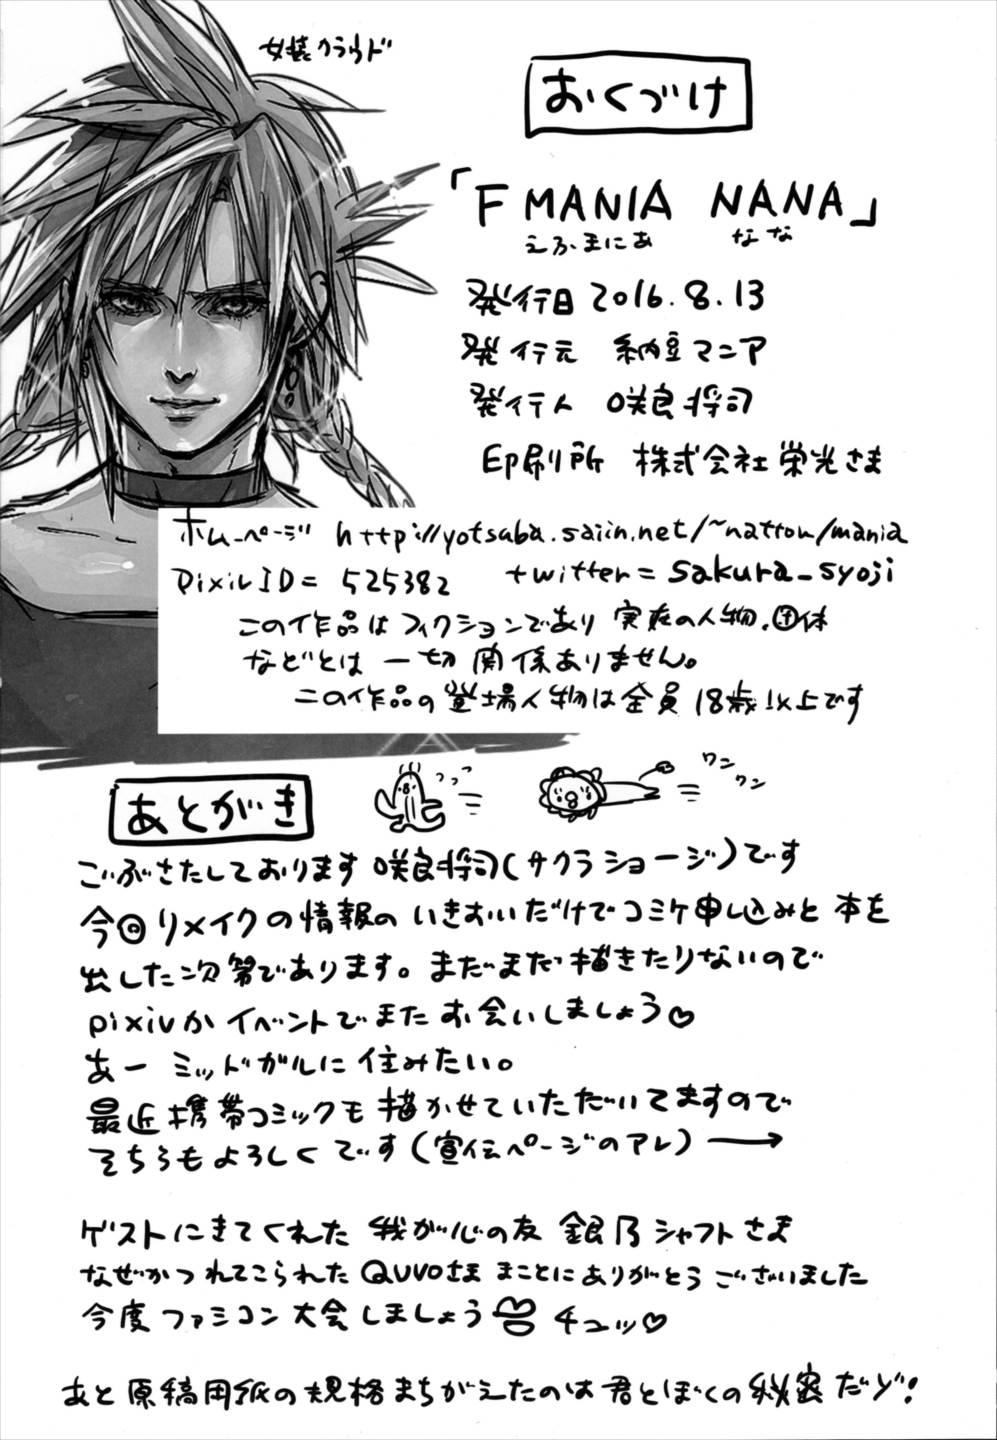 女装クラウド
おくづけ
「F MANIA NANA」
えふまにあ なな
発行日 2016.8.13
発行元 納豆マニア
発行人 咲良将司
印刷所 株式会社 栄光さま
ホームページ http://yotsuba.saiin.net/~nattou/mania
pixiv ID = 525382 twitter = sakura_syoji
この作品はフィクションであり 実在の人物、団体
などとは 一切 関係ありません。
この作品の登場人物は全員 18歳以上です
ワン
ワン
っっっ
あとがき
ごぶさたしております 咲良将司(サクラショージ)です
今回リメイクの情報の いきおいだけでコミケ申し込みと 本を
出した次第であります。まだまだ描きたりないので
pixivか イベントでまた お会いしましょう♡
あー ミッドガルに 住みたい。
最近携帯コミックも 描かせていただいてますので
そちらもよろしくです(宣伝ページのアレ)→
ゲストにきてくれた 我が心の友 銀乃シャフトさま
なぜかつれてこられたQuvoさま まことにありがとうございました
今度 ファミコン 大会しましょう チュッ♡
あと 原稿用紙の規格まちがえたのは 君とぼくの秘密だゾ!